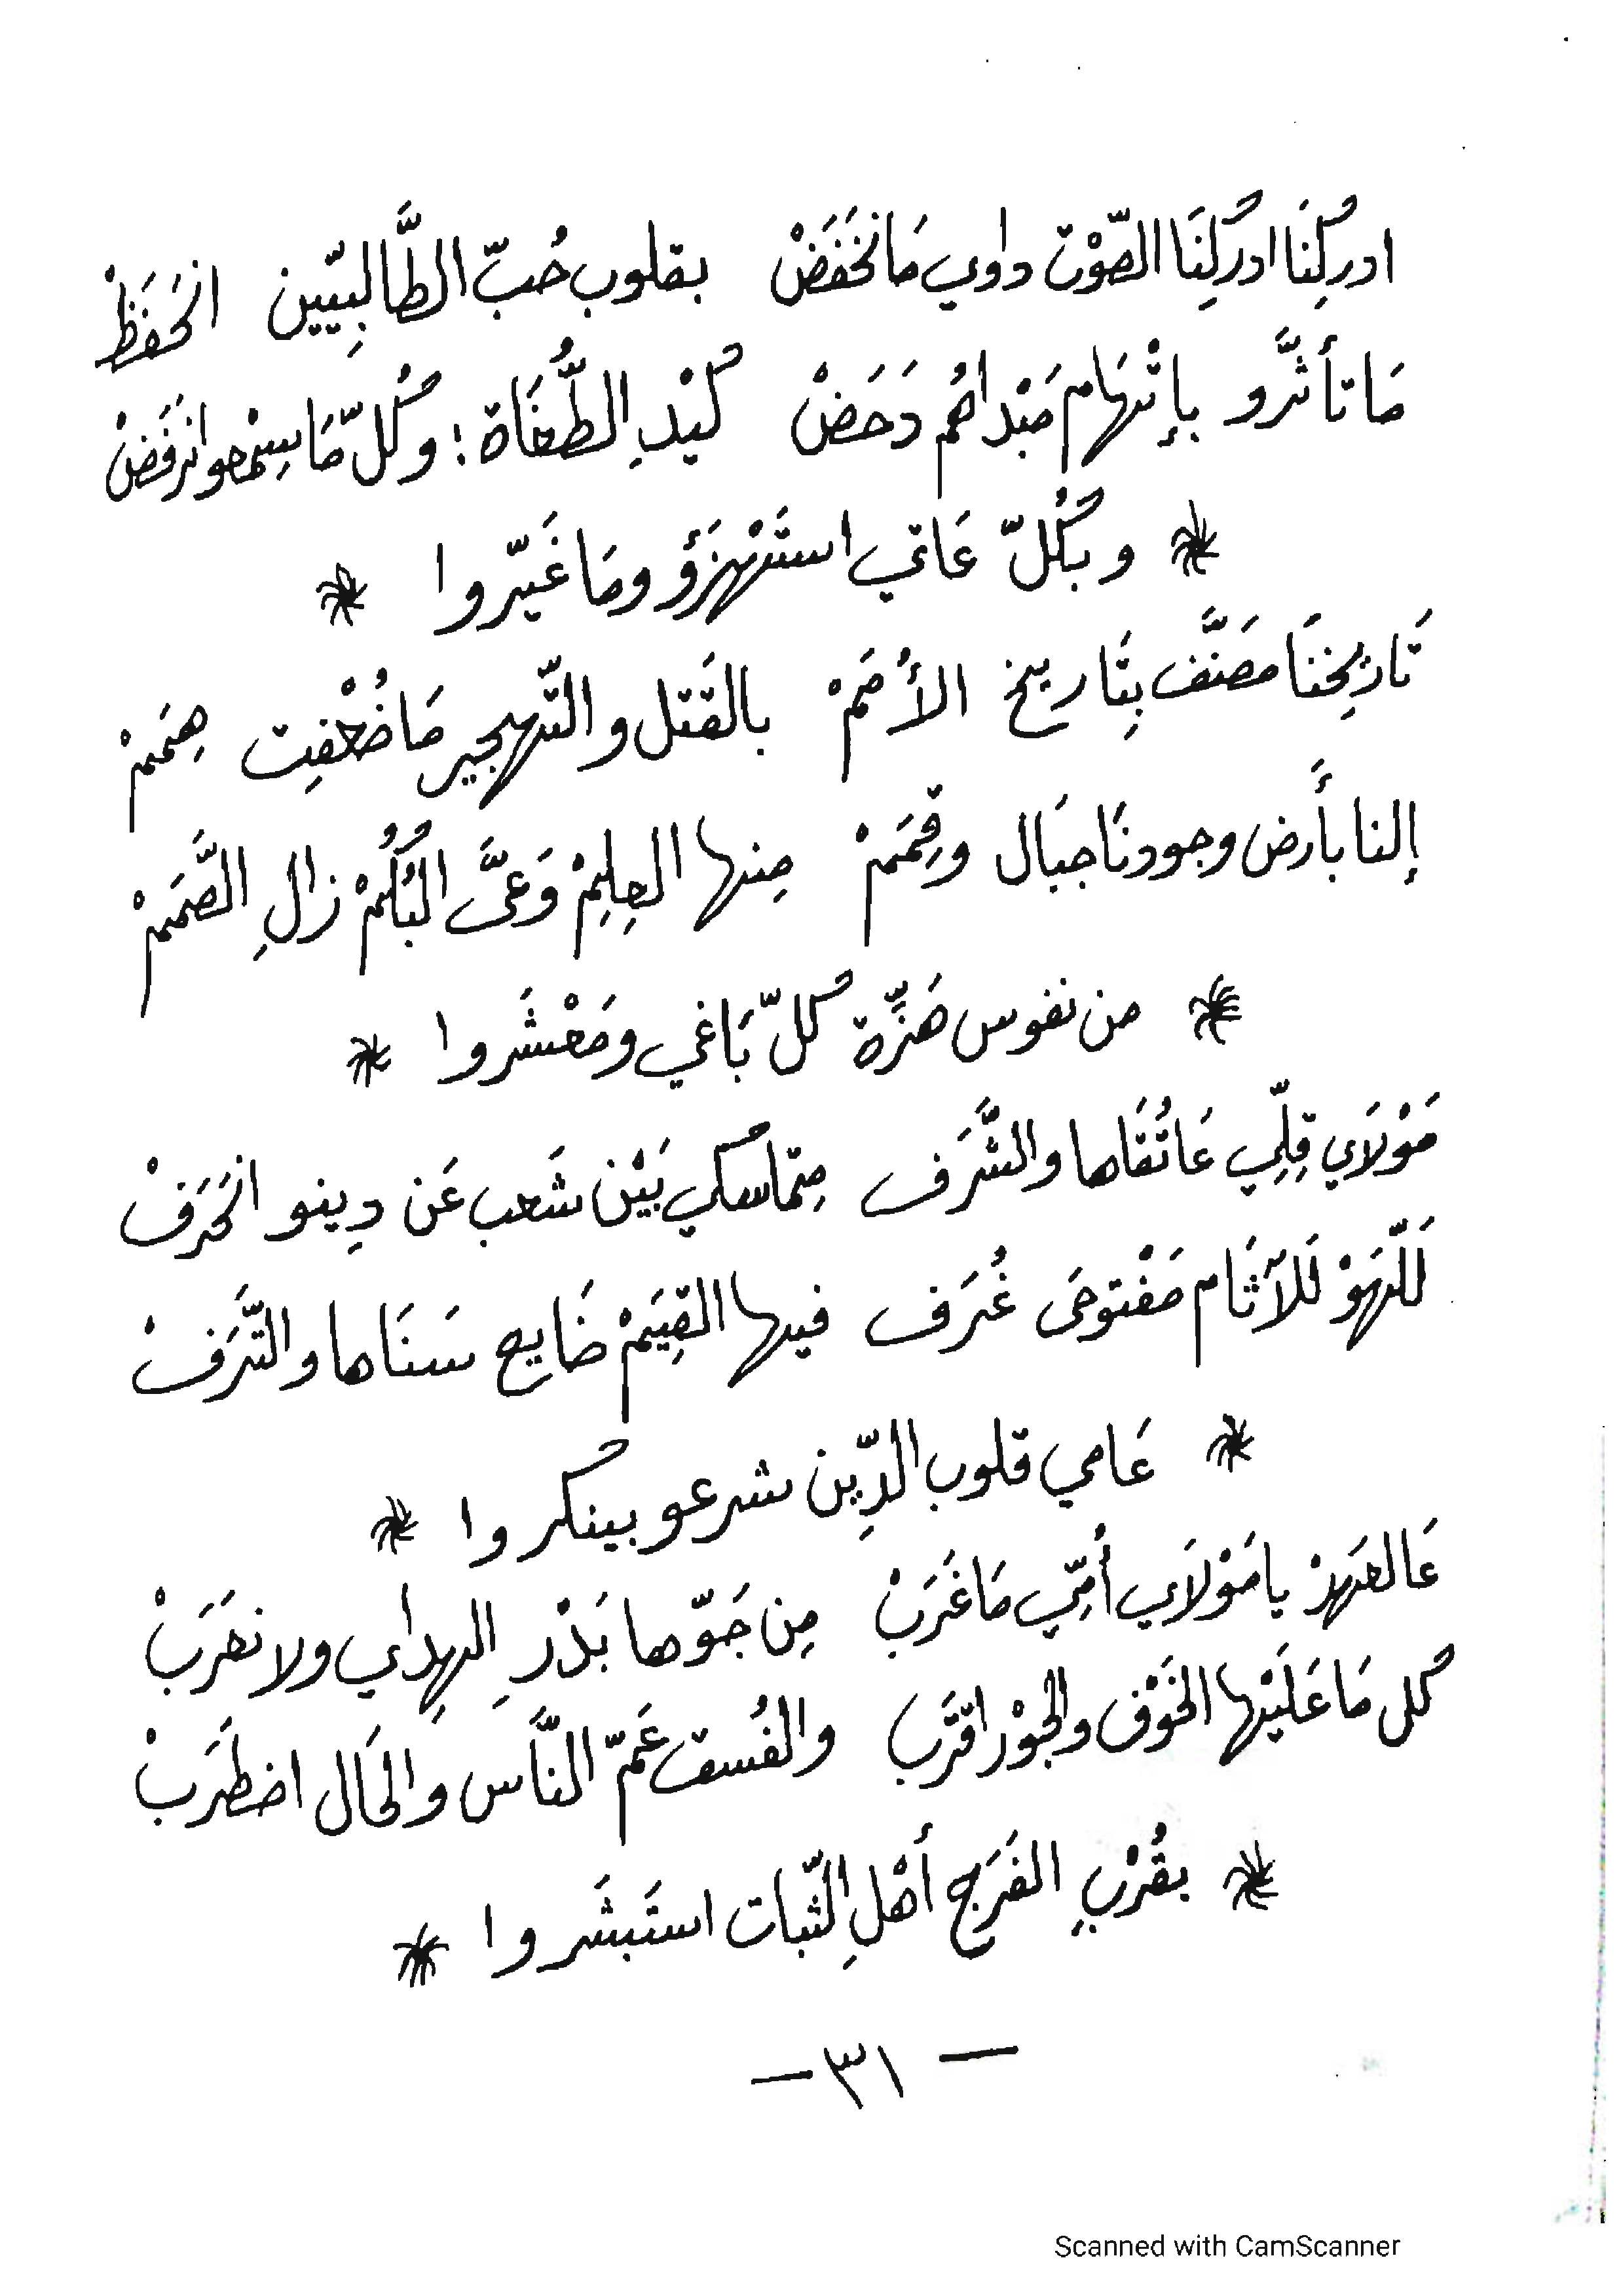 ادركِنَا ادركِنَا الصّوْت داوي مَا نخَفَضْ بقلوب حُبّ الطَّالبِيّين انحَفَظْ
مَا تأثَّرو بإتْهَام مَبْداهُم دَحَضْ كَيْدِ الطُّغَاة؛ وكُلّ مَّا سِمْحوا نرَفَضْ
وبكُلّ عَاتي استَهْزَؤ ومَا غَيّروا
تَاريْخِنَا مصَنَّف بِتَاريخ الأُمَمْ بالقَتل والتّهجير مَا ضُعْفِت هِمَمْ
إلنا بأَرض وجودنَا جبَال وقِمَمْ مِنها الحِلِمْ وَعَّى البُكُمْ زالِ الصَّمَمْ
من نفوس هَزِّة كلّ بَاغي ومَعْشَروا
مَوْلَاي قِلِّي عَاتُقَاها والشَّرَف مِتماسكي بَيْن شَعب عَن دِينو انحَرَفْ
لَلّهَوْ لَلآثَام مَفْتوحَى غُرَف فيها القِيَمْ ضَايع سَنَاها والتَّرَفْ
عَامي قلوب الدِّين شرعو بينكروا
عَالعهَدْ يا مَوْلَاي أُمِّي مَا غَرَبْ مِن جَوّها بَدْرِ الهِداي ولا نهَرَبْ
كل مَا عَلَيْها الخَوْف والجَوْر اقتَرَب والفُسق عَمّ النَّاس وَالحَال اضطَرَبْ
بقُرْبِ الفَرَج أهْلِ الثّبات استَبشَروا
— ٣١ —
Scanned with CamScanner